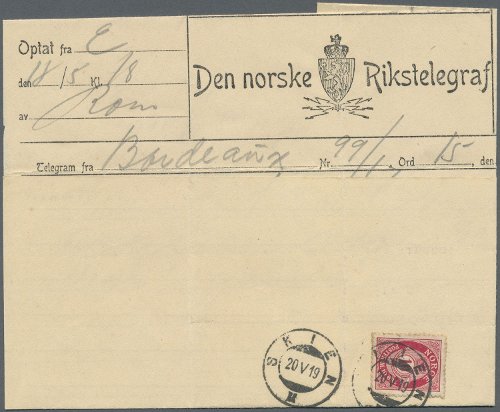 Optat fra E
den 18/5 Kl. /8
av Rom
Den norske Rikstelegraf
Telegram fra Bordeaux, Nr. 99/1, Ord 15, den
SKIEN
20 V 19
NOR
SKIEN
20 V 19